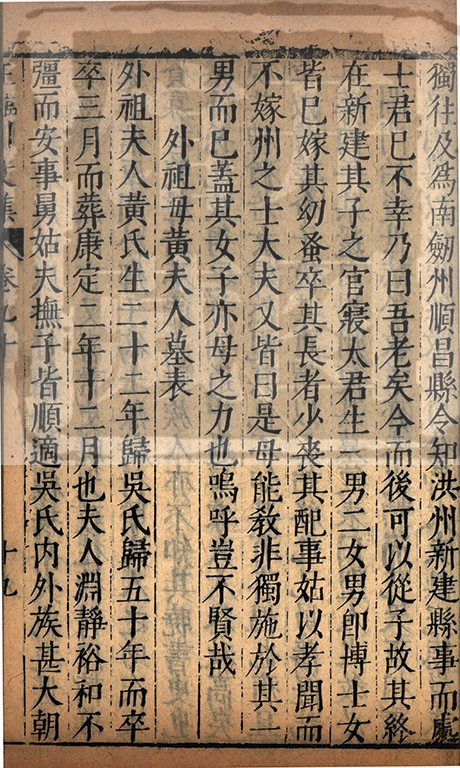 獨往及爲南劒州順昌縣令知洪州新建縣事而處
士君巳不幸乃曰吾老矣今而後可以從子故其終
在新建其子之官寢太君生一男二女男卽博士女
皆巳嫁其幼蚤卒其長者少喪其配事姑以孝聞而
不嫁州之士大夫又皆曰是母能敎非獨施於其一
男而巳蓋其女子亦母之力也嗚呼豈不賢哉
外祖母黃夫人墓表
外祖夫人黃氏生二十二年歸吳氏歸五十年而卒
卒三月而葬康定二年十二月也夫人淵靜裕和不
彊而安事舅姑夫撫子皆順適吳氏內外族甚大朝
王臨川文集 卷九十 十九